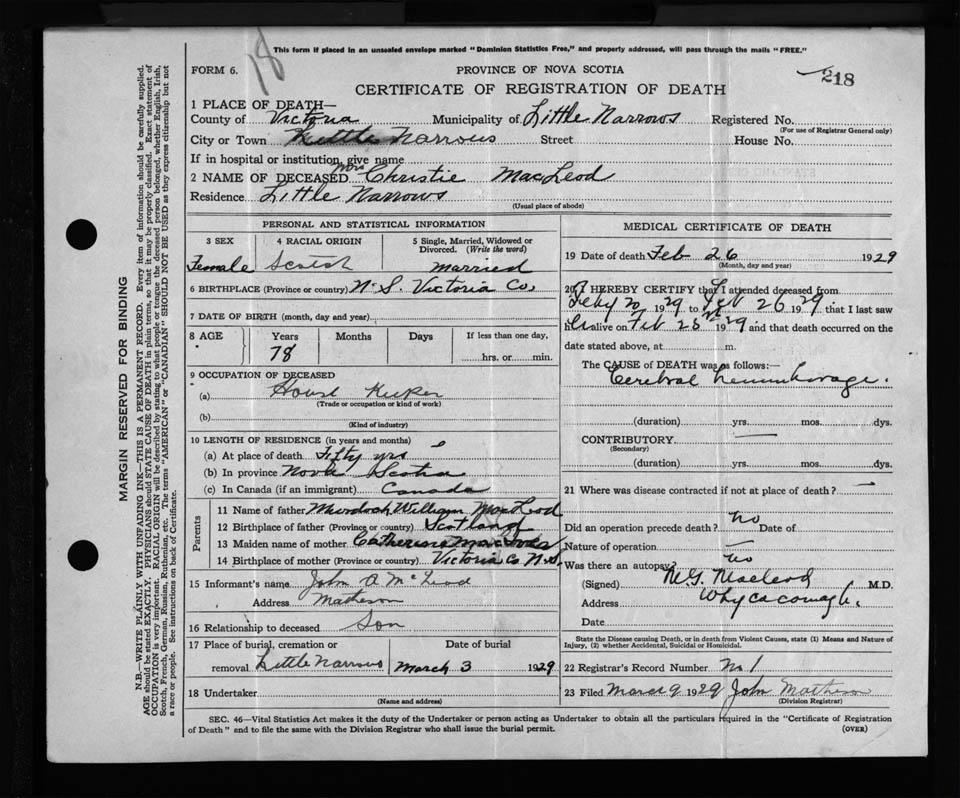 This form if placed in an unsealed envelope marked "Dominion Statistics Free," and properly addressed, will pass through the mails "FREE."
18
FORM 6.
PROVINCE OF NOVA SCOTIA
218
CERTIFICATE OF REGISTRATION OF DEATH
1 PLACE OF DEATH—
County of Victoria Municipality of Little Narrows Registered No.
(For use of Registrar General only)
City or Town Little Narrows Street House No.
If in hospital or institution, give name
2 NAME OF DECEASED Mrs Christie MacLeod
Residence Little Narrows
(Usual place of abode)
PERSONAL AND STATISTICAL INFORMATION
3 SEX 4 RACIAL ORIGIN 5 Single, Married, Widowed or Divorced. (Write the word)
Female Scotch married
6 BIRTHPLACE (Province or country) N.S. Victoria Co,
7 DATE OF BIRTH (month, day and year)
8 AGE Years Months Days If less than one day,
78 hrs. or min.
9 OCCUPATION OF DECEASED
(a) House Keeper
(Trade or occupation or kind of work)
(b)
(Kind of industry)
10 LENGTH OF RESIDENCE (in years and months)
(a) At place of death Fifty yrs
(b) In province Nova Scotia
(c) In Canada (if an immigrant) Canada
Parents
11 Name of father Murdoch William MacLeod
12 Birthplace of father (Province or country) Scotland
13 Maiden name of mother Catherine
14 Birthplace of mother (Province or country) Victoria Co N.S.
15 Informant's name John A McLeod
Address Matheson
16 Relationship to deceased Son
17 Place of burial, cremation or Date of burial
removal Little Narrows March 3 1929
18 Undertaker
(Name and address)
MEDICAL CERTIFICATE OF DEATH
19 Date of death Feb 26 1929
(Month, day and year)
20 I HEREBY CERTIFY that I attended deceased from
Feby 20 1929 to Feb 26 1929 that I last saw
alive on Feb 25 1929 and that death occurred on the
date stated above, at m.
The CAUSE of DEATH was as follows:—
Cerebral hemmhorage.
(duration) yrs. mos. dys.
CONTRIBUTORY —
(Secondary)
(duration) yrs. mos. dys.
21 Where was disease contracted if not at place of death? —
Did an operation precede death? no Date of
Nature of operation —
Was there an autopsy? no
(Signed) M.G. Macleod M.D.
Address Whycocomagh.
Date
State the Disease causing Death, or in death from Violent Causes, state (1) Means and Nature of
Injury, (2) whether Accidental, Suicidal or Homicidal.
22 Registrar's Record Number No 1
23 Filed March 9 1929 John Matheson
(Division Registrar)
SEC. 46—Vital Statistics Act makes it the duty of the Undertaker or person acting as Undertaker to obtain all the particulars required in the "Certificate of Registration
of Death" and to file the same with the Division Registrar who shall issue the burial permit.
(OVER)
MARGIN RESERVED FOR BINDING
N.B.—WRITE PLAINLY WITH UNFADING INK—THIS IS A PERMANENT RECORD. Every item of information should be carefully supplied.
AGE should be stated EXACTLY. PHYSICIANS should STATE CAUSE OF DEATH in plain terms, so that it may be properly classified. Exact statement of
OCCUPATION is very important. RACIAL ORIGIN will be described by stating to what people or tongue the deceased person belonged, whether English, Irish,
Scotch, French, German, Russian, Ruthenian, etc. The terms "AMERICAN" or "CANADIAN" SHOULD NOT BE USED as they express citizenship but not
a race or people. See instructions on back of Certificate.